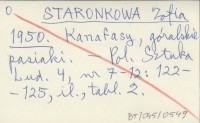 0 STARONKOWA Zofia
1950. Kanafasy, góralskie
pasiaki. — Pol. Sztuka
Lud. 4, nr 7-12: 122-
-125, il., tabl. 2.
BT/045/0549